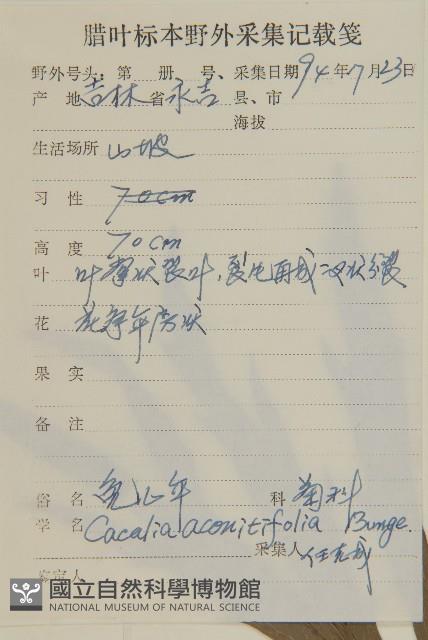 腊叶标本野外采集记载笺
野外号头：第 册 号、采集日期94年7月23日
产 地 吉林省永吉县、市
海拔
生活场所 山坡
习 性 70cm
高 度 70cm
叶 叶掌状裂叶，裂片再成二次状
花 花冠 状
果 实
备 注
俗 名 兔儿 科 菊科
学 名 Cacalia aconitifolia Bunge.
采集人 任
國立自然科學博物館
NATIONAL MUSEUM OF NATURAL SCIENCE